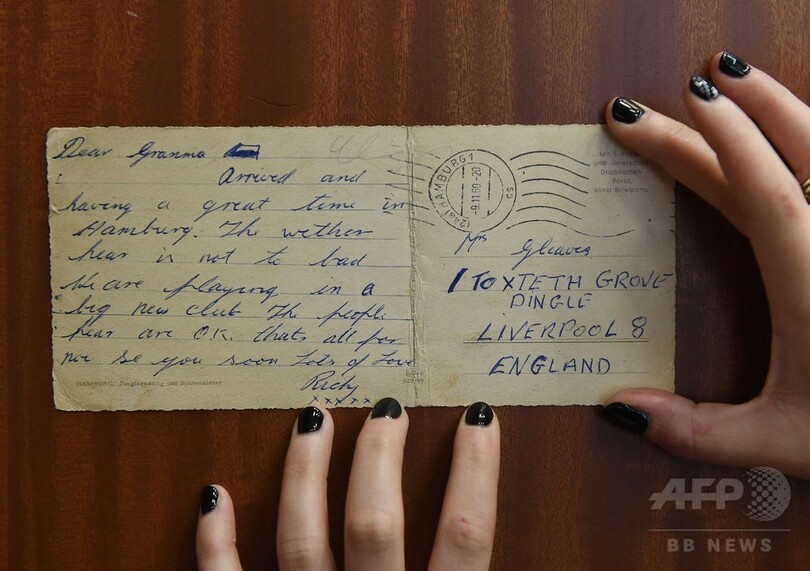 Dear Granma
Arrived and
having a great time in
Hamburg. The wether
hear is not to bad
We are playing in a
big new club The people
hear are O.K. thats all for
now se you soon Lots of Love
Richy
xxxxx
HAMBURG, Jungfernstieg und Binnenalster
HAMBURG 1
-9.11.60-20
Mrs Gleaves
1 TOXTETH GROVE
DINGLE
LIVERPOOL 8
ENGLAND
AFP
BB NEWS